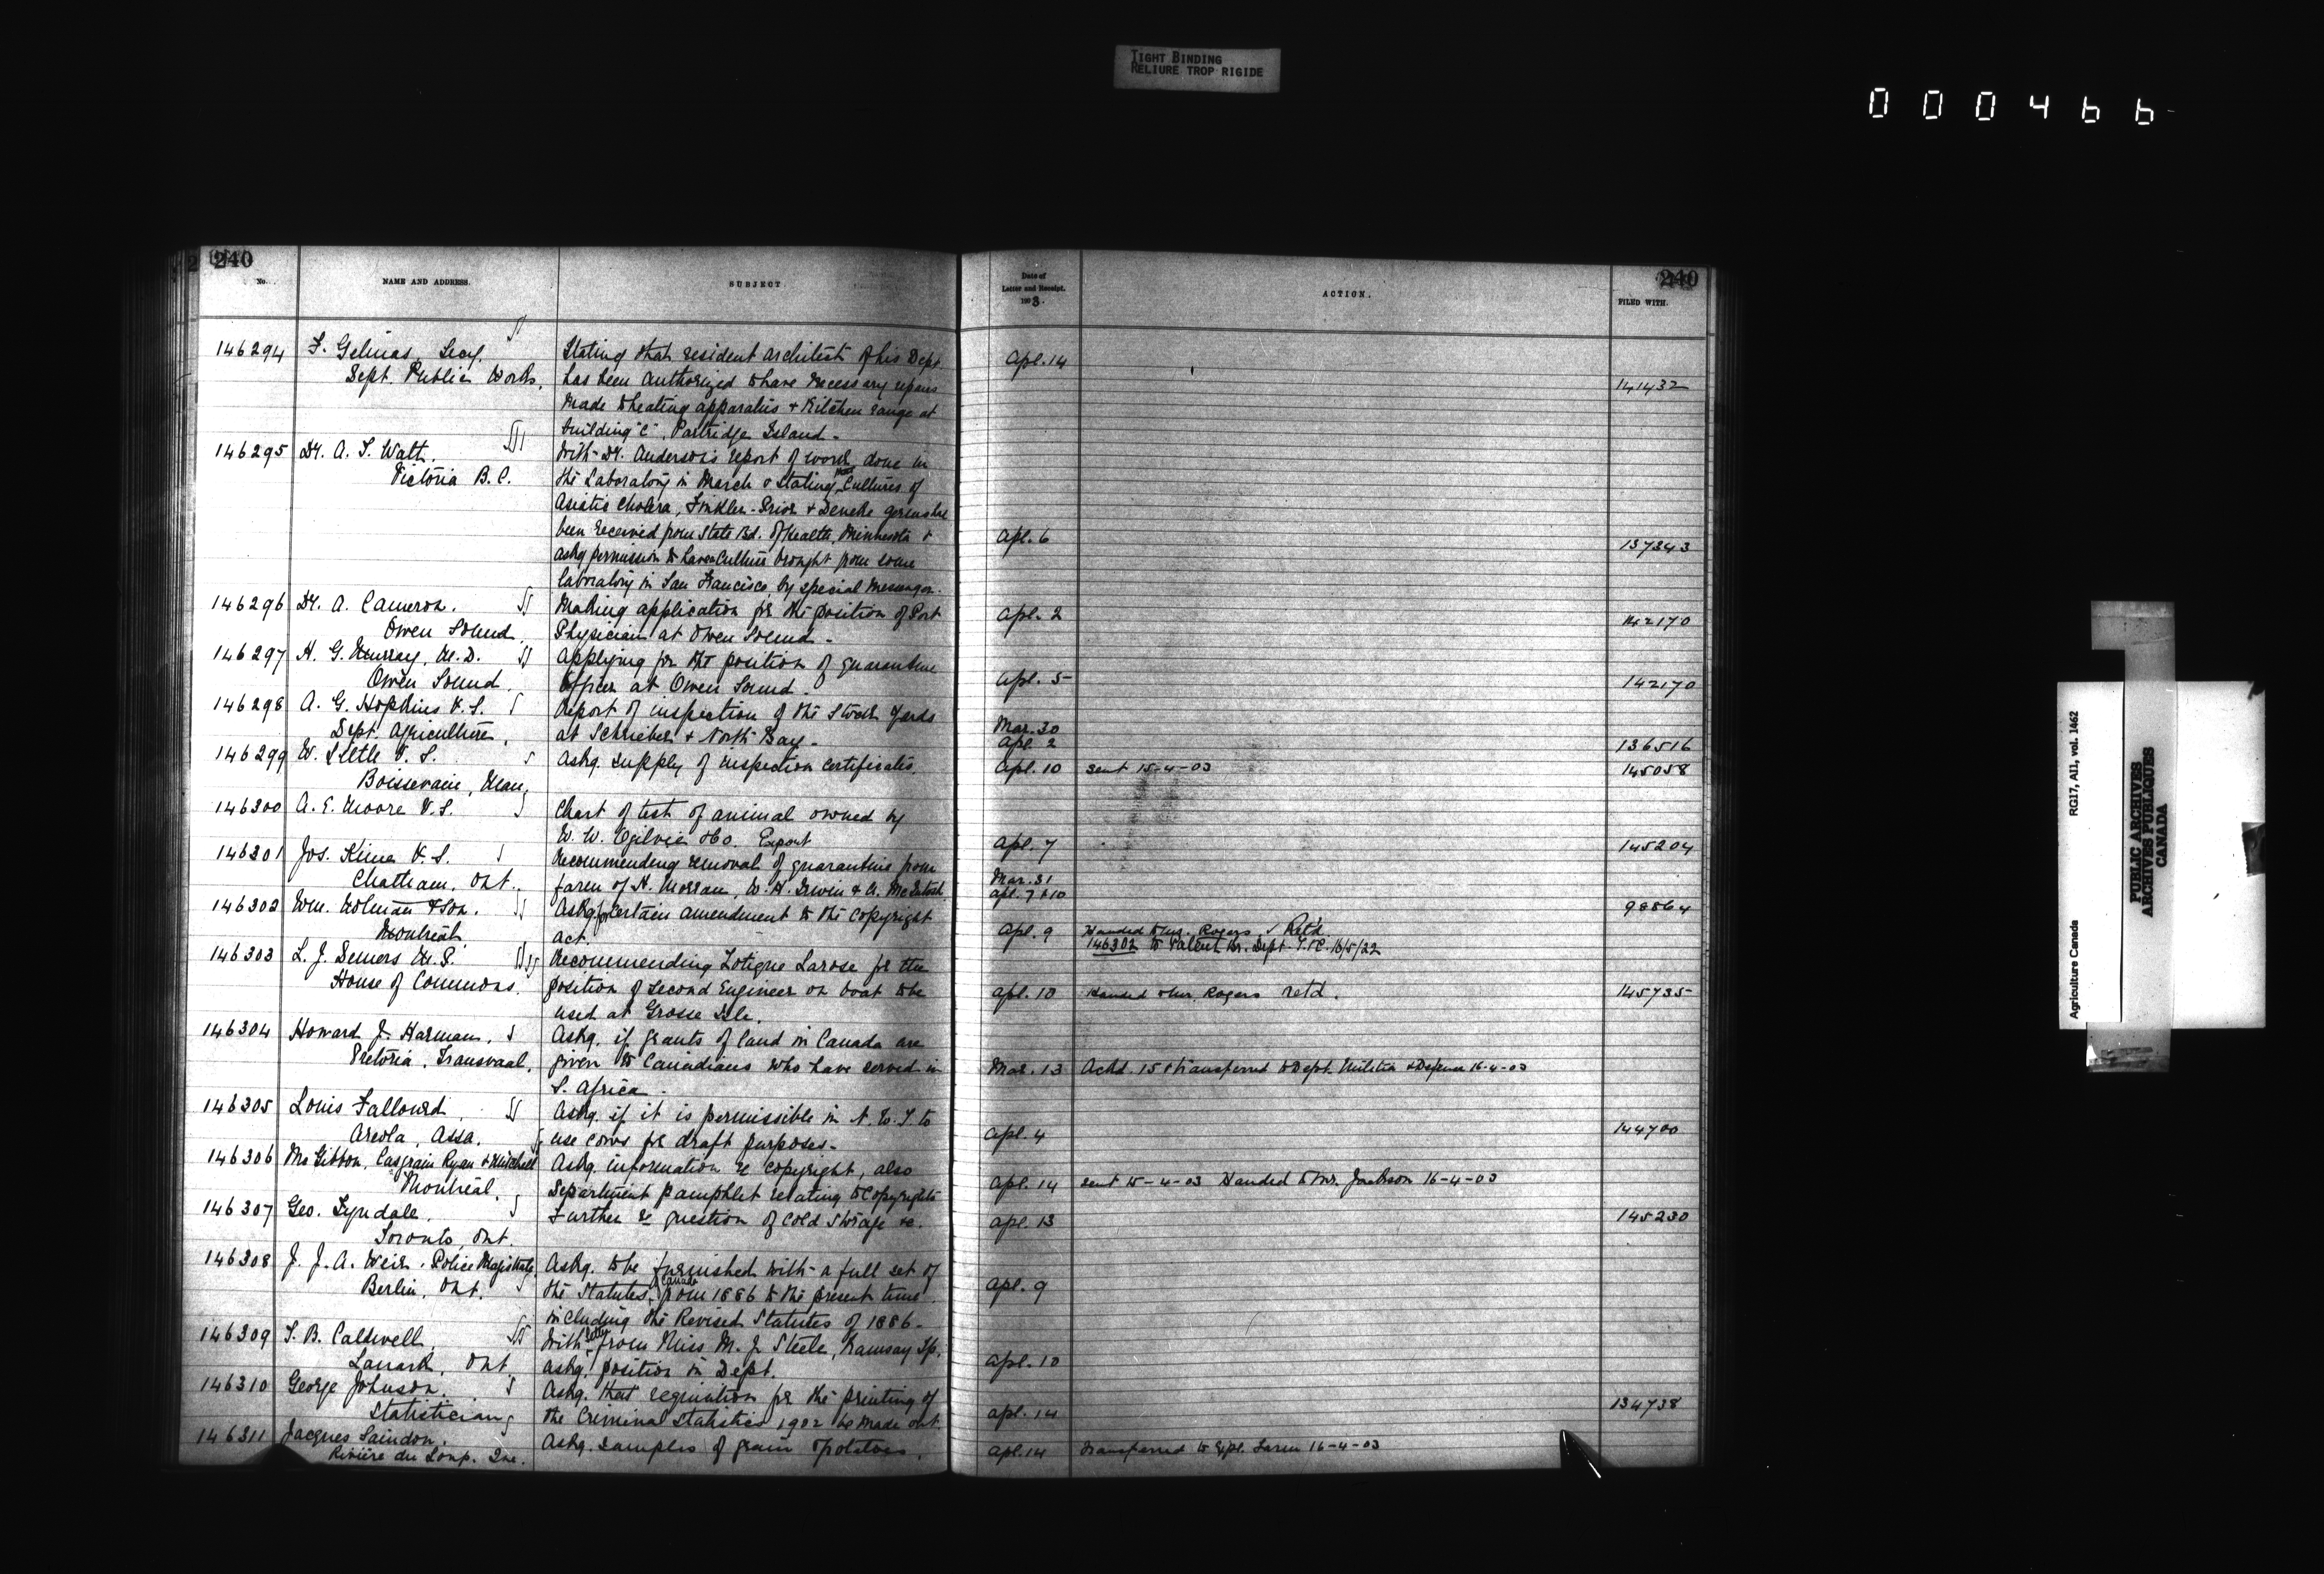 TIGHT BINDING
RELIURE TROP RIGIDE
000466
240
No.
NAME AND ADDRESS.
SUBJECT
146294 F. Gelinas, Secy.
Dept. Public Works.
Stating that resident architect of his Dept.
has been authorized to have necessary repairs
made to heating apparatus + kitchen range at
building "C", Partridge Island -
146295 Dr. A. T. Watt.
Victoria B.C.
With Dr. Anderson's report of work done in
the Laboratory in March & stating that cultures of
Asiatic Cholera, Finkler-Prior + Deneke germs have
been received from State Bd. of Health, Minnesota &
askg permission to have culture brought from some
laboratory in San Francisco, by special messenger.
146296 Dr. A. Cameron.
Owen Sound.
Making application for the position of Port
Physician at Owen Sound -
146297 H. G. Murray, M.D.
Owen Sound.
Applying for the position of quarantine
Officer at Owen Sound.
146298 A. G. Hopkins V.S.
Dept. Agriculture.
Report of inspection of the Stock Yards
at Schrieber + North Bay -
146299 W. Little V.S.
Boissevain, Man.
Askg. supply of inspection certificates.
146300 A. E. Moore V.S.
Chart of test of animal owned by
W. W. Ogilvie & Co. Export
146301 Jos. Kime V.S.
Chatham, Ont.
Recommending removal of quarantine from
farm of H. Morran, W. H. Irwin & A. McIntosh
146302 Wm. Notman & Son.
Montreal.
Askg for certain amendment to the copyright
act.
146303 L. J. Demers M.P.
House of Commons.
Recommending Zotique Larose for the
position of second Engineer on boat to be
used at Grosse Isle.
146304 Howard J. Harman.
Pretoria, Transvaal.
Askg. if grants of land in Canada are
given to Canadians who have served in
S. Africa -
146305 Louis Fallourd.
Areola, Assa.
Askg. if it is permissible in N.W.T. to
use cows for draft purposes -
146306 McGibbon, Casgrain Ryan & Mitchell
Montreal.
Askg. information re copyright, also
Department pamphlet relating to copyrights
146307 Geo. Lyndale.
Toronto, Ont.
Further re question of cold storage &c.
146308 J. J. A. Weir, Police Magistrate,
Berlin, Ont.
Askg. to be furnished with a full set of
the Statutes of Canada from 1886 to the present time
including the Revised Statutes of 1886 -
146309 T. B. Caldwell.
Lanark, Ont
With letter from Miss M. J. Steele, Ramsay Tp.
askg. position in Dept.
146310 George Johnson.
Statistician
Askg. that requisition for the printing of
the Criminal Statistics 1902 be made out.
146311 Jacques Saindon.
Rivière du Loup. Que.
Askg. samples of grain & potatoes.
240
Date of
Letter and Receipt.
1903.
ACTION.
FILED WITH.
Apl. 14
141432
Apl. 6
137343
Apl. 2
142170
Apl. 5
142170
Mar. 30
Apl. 2
136516
Apl. 10 sent 15-4-03 145058
Apl. 7 145204
Mar. 31
Apl. 7 & 10
98864
Apl. 9 Handed to Mr. Rogers Ret'd
146302 to Patent Br. Dept. T. & C. 16/5/22
Apl. 10 Handed to Mr. Rogers retd. 145735
Mar. 13 Ackd. 15 & transferred to Dept. Militia & Defence 16-4-03
Apl. 4 144700
Apl. 14 sent 15-4-03 Handed to Mr. Jackson 16-4-03
Apl. 13 145230
Apl. 9
Apl. 10
Apl. 14 134738
Apl. 14 Transferred to Expl. Farm 16-4-03
Agriculture Canada RG17, AII, vol. 1462
PUBLIC ARCHIVES
ARCHIVES PUBLIQUES
CANADA